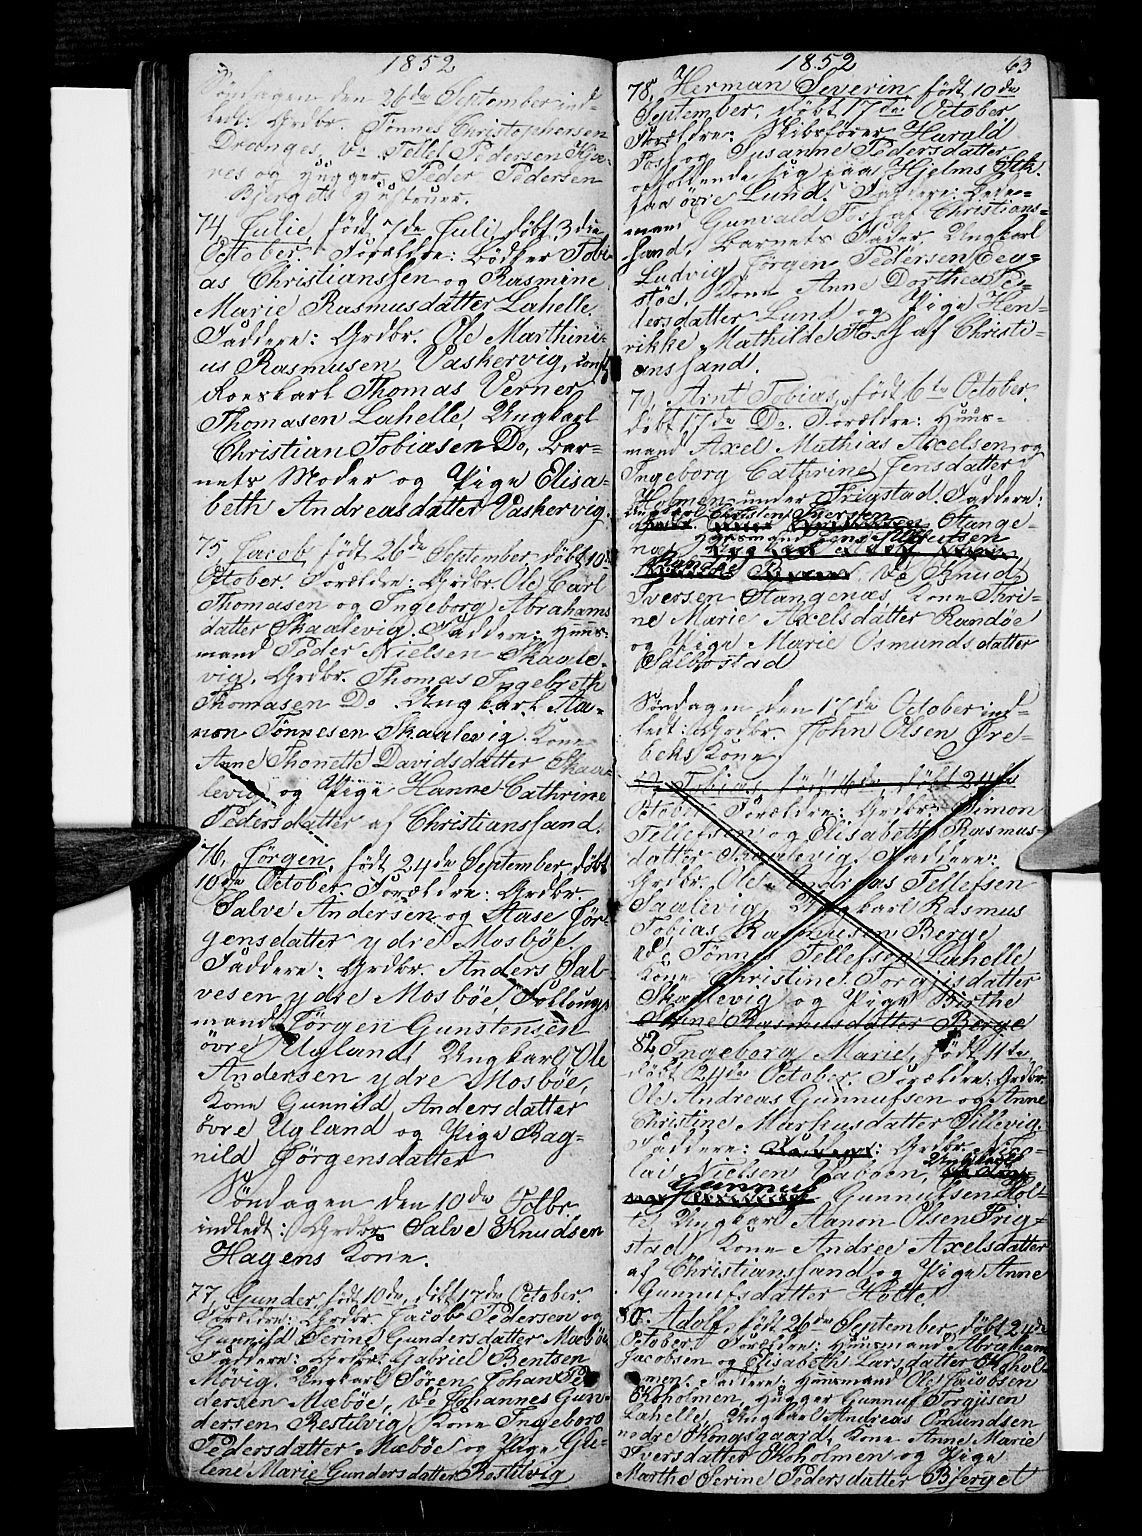 1852
Søndagen den 26de September ind-
ledt: Grdbr. Tønnes Christophersen
Dranges, do Tellef Pedersen
og Hugger Peder Pedersen
Bjergets Hustruer.
74, Julie født 7de Juli, døbt 3die
October. Forældre: Bødker Tobi-
as Christianssen og Rasmine
Marie Rasmusdatter Lahelle.
Faddere: Grdbr. Ole Marthini-
us Rasmusen Vaskervig,
Thomas Verner
Thomasen Lahelle, Ungkarl
Christian Tobiasen Do, Bar-
nets Moder og Pige Elisa-
beth Andreasdatter Vaskervig.
75, Jacob født 26de September, døbt 10de
October. Forældre: Grdbr. Ole Carl
Thomasen og Ingeborg Abrahams
datter Skaalevig. Faddere: Huus-
mand Peder Nielsen Skaale-
vig, Grdbr. Thomas Ingebreth
Thomasen Do Ungkarl Aa-
non Tønnesen Skaalevig. Kone
Anne Thonette Davidsdatter Skaa-
levig og Pige Hanne Cathrine
Pedersdatter af Christianssand.
76, Jørgen, født 24de September, døbt
10de October. Forældre: Grdbr.
Salve Andersen og Aase Jør-
gensdatter ydre Mosbøe
Faddere: Grdbr. Anders Sal-
vesen ydre Mosbøe, Follougs
mand Jørgen Gunstensen
øvre Ugland, Ungkarl Ole
Andersen ydre Mosbøe,
Kone Gunnild Andersdatter
øvre Ugland og Pige Rag-
nild Jørgensdatter
Søndagen den 10de Octbr.
indledt: Grdbr. Salve Knudsen
Hagens Kone.
77, Gunder, født 10de, døbt 17de October
Forældre: Grdbr. Jacob Pedersen og
Gunnild Serine Gundersdatter Mæbøe
Faddere: Gabriel Bentsen
Møvig. Ungkarl Søren Johan Pe-
dersen Mæbøe, do Johannes Gun-
dersen Restelvig, Kone Ingeborg
Pedersdatter Mæbøe og Pige
lene Marie Gundersdatter Rostelvig
1852 63
78, Herman Severin, født 10de
September, døbt 17de October
Forældre: Skibsfører Harald
Foss og Susanne Pedersdatter
opholdende sig paa Hjelms
paa øvre Lund. Faddere:
mand Gunvald Foss af Christians-
sand, Barnets Fader, Ungkarl
Ludvig Jørgen Pedersen
støe, Kone Anne Dorthea Pe-
dersdatter Lund og Pige Hen-
rikke Mathilde Foss af Christi-
anssand.
79, Arnt Tobias, født 6te October
døbt 17de Do. Forældre: Huus-
mand Axel Mathias Axelsen og
Ingeborg Cathrine Jensdatter
Holmen under Frigstad. Faddere:
Ungkarl Christen Iversen
Stange-
næs, Huusmand
Randøe, do Knud
Iversen Stangenæs, Kone Thri-
ne Marie Axelsdatter Randøe
og Pige Marie Osmundsdatter
Salbostad
Søndagen den 17de October ind-
ledt: Grdbr. John Olsen Øre-
beks Kone.
Tobias, født 16de, døbt 24de
October. Forældre: Grdbr. Simon
Tellefsen og Elisabeth Rasmus-
datter Skaalevig. Faddere:
Grdbr. Ole Andreas Tellefsen
Saalevig, Ungkarl Rasmus
Tobias Rasmusen Berge
do Tønnes Tellefsen Lahelle
Kone Christine Torgjisdatter
Skaalevig og Pige Birthe
Serine Rasmusdatter Berge
82, Ingeborg Marie, født 11te
døbt 24de October. Forældre: Grdbr.
Ole Andreas Gunnufsen og Anne
Christine Marhusdatter Sillevig.
Faddere: Grdbr. Nico-
lai Nielsen Vaboen, Ungkarl
Gunnuf Gunnufsen Hol-
te, Ungkarl Aanon Olsen Frig-
stad, Kone Andrea Axelsdatter
af Christianssand og Pige Anne
Gunnufsdatter Holte.
80, Adolf, født 26de September, døbt 24de
October. Forældre: Huusmand Abraham
Jacobsen og Elisabeth Larsdatter Skohol-
men. Faddere: Huusmand Ole Jacobsen
Skoholmen, Hugger Gunnuf Torgjisen
Lahelle, Ungkarl Andreas Omundsen
nedre Kongsgaard, Kone Anne Marie
Iversdatter Skoholmen og Pige
Marthe Serine Pedersdatter Bjerget